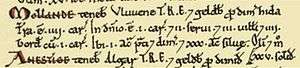 MOLLANDE teneb Uluuene T.R.E. 7 geldb p dim hida
Tra. ē. iii. car. In dnio. ē. i. car. 7 ii. serui 7 ii. uilti 7 iii.
bord cu. i. car. Ibi ac pti 7 dim 7 xxx. ac siluæ. Olim
ANESTIGE teneb Algar T.R.E. 7 geldb p dimid xxv. solid